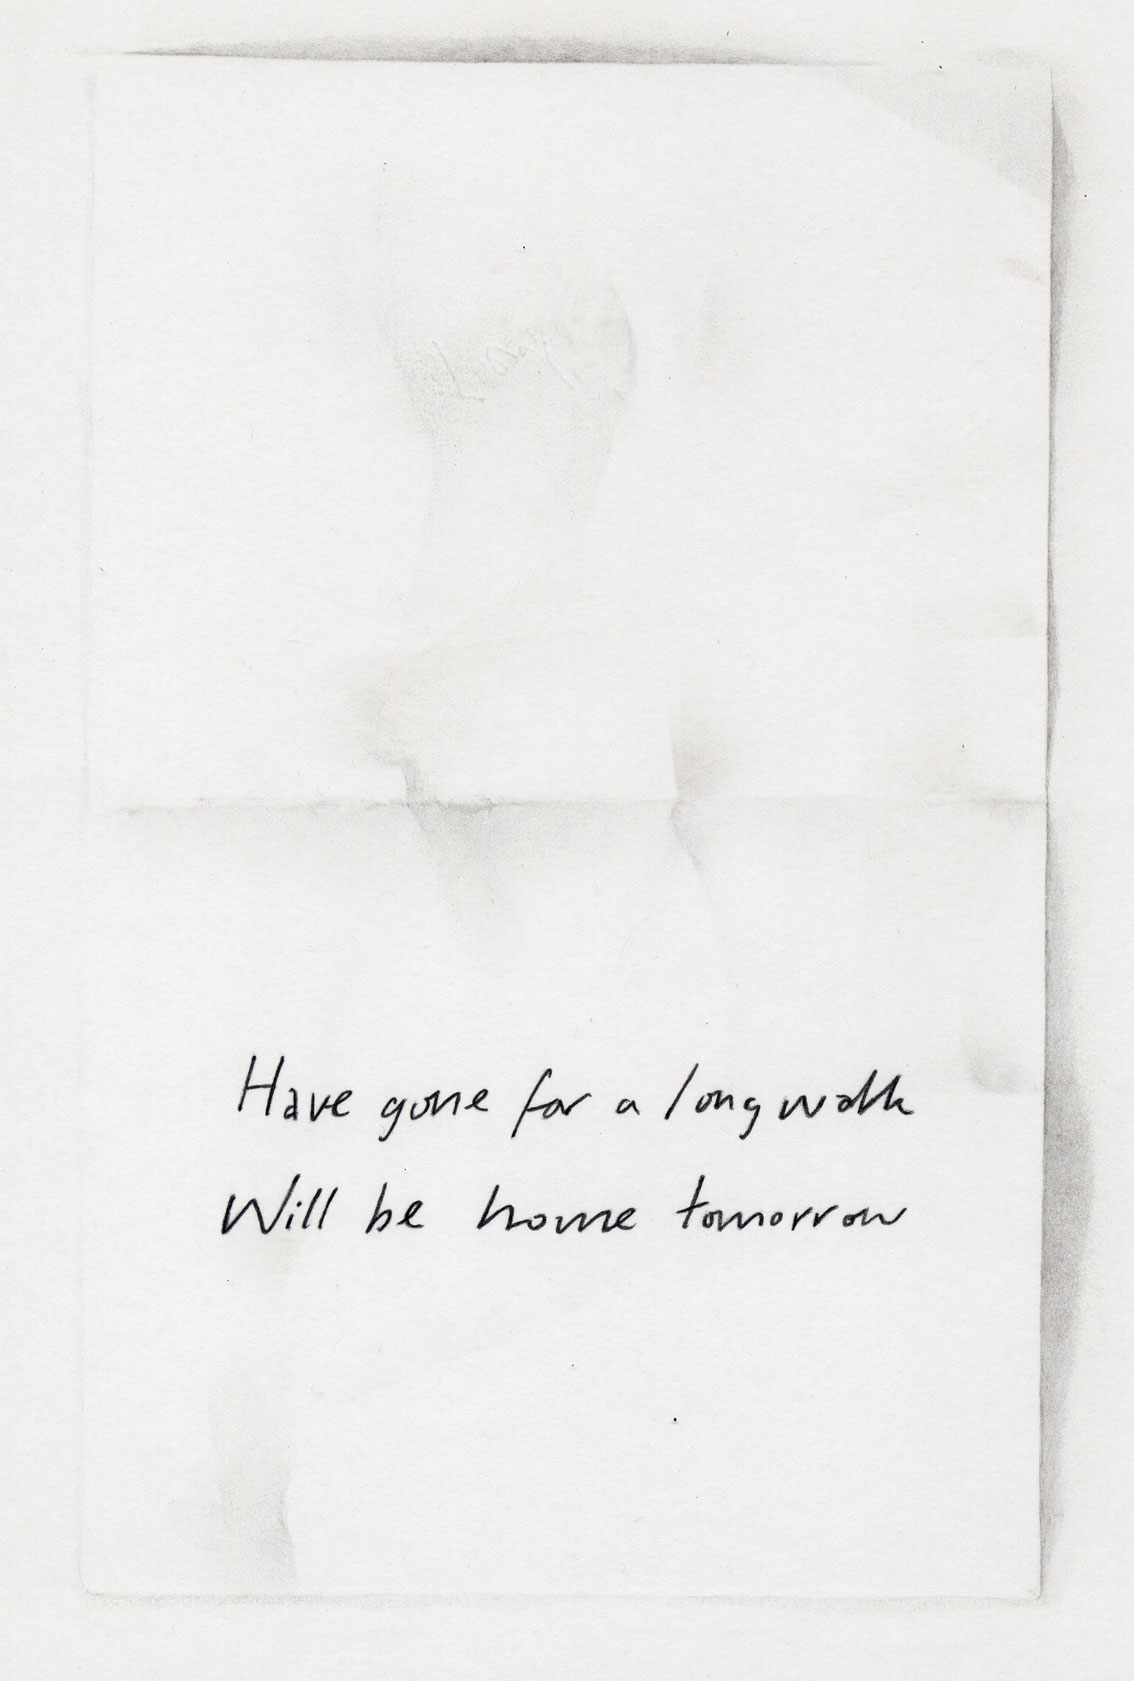 Have gone for a long walk
Will be home tomorrow